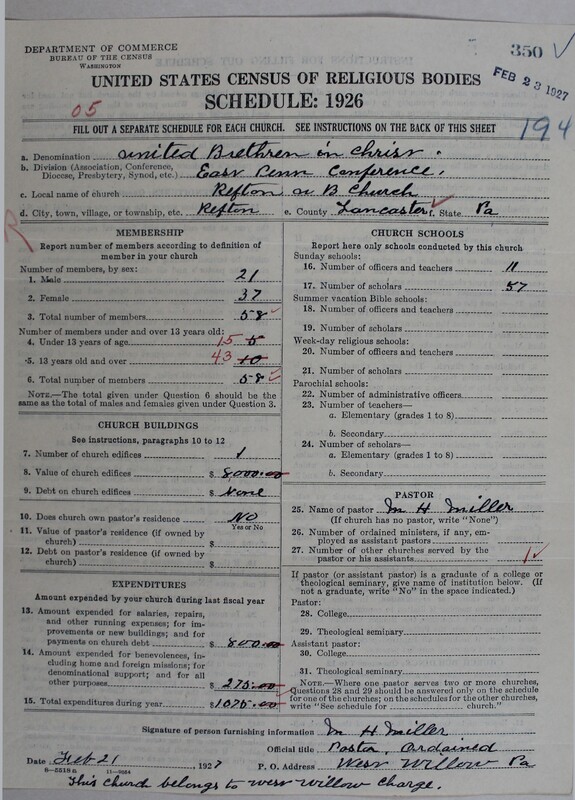 DEPARTMENT OF COMMERCE
BUREAU OF THE CENSUS
WASHINGTON
350
FEB 23 1927
UNITED STATES CENSUS OF RELIGIOUS BODIES
SCHEDULE: 1926
05
194
FILL OUT A SEPARATE SCHEDULE FOR EACH CHURCH. SEE INSTRUCTIONS ON THE BACK OF THIS SHEET
a. Denomination United Brethren in Christ.
b. Division (Association, Conference, Diocese, Presbytery, Synod, etc.) East Penn Conference.
c. Local name of church Refton U B Church
d. City, town, village, or township, etc. Refton e. County Lancaster f. State Pa
R
MEMBERSHIP
Report number of members according to definition of
member in your church
Number of members, by sex:
1. Male 21
2. Female 37
3. Total number of members 58
Number of members under and over 13 years old:
4. Under 13 years of age 15 5
5. 13 years old and over 43 10
6. Total number of members 58
NOTE.—The total given under Question 6 should be
same as the total of males and females given under Question 3.
CHURCH BUILDINGS
See instructions, paragraphs 10 to 12
7. Number of church edifices 1
8. Value of church edifices $ 8000.00
9. Debt on church edifices $ None
10. Does church own pastor's residence No
Yes or No
11. Value of pastor's residence (if owned by
church) $
12. Debt on pastor's residence (if owned by
church) $
EXPENDITURES
Amount expended by your church during last fiscal year
13. Amount expended for salaries, repairs,
and other running expenses; for im-
provements or new buildings; and for
payments on church debt $ 800.00
14. Amount expended for benevolences, in-
cluding home and foreign missions; for
denominational support; and for all
other purposes $ 275.00
15. Total expenditures during year $ 1075.00
CHURCH SCHOOLS
Report here only schools conducted by this church
Sunday schools:
16. Number of officers and teachers 11
17. Number of scholars 57
Summer vacation Bible schools:
18. Number of officers and teachers
19. Number of scholars
Week-day religious schools:
20. Number of officers and teachers
21. Number of scholars
Parochial schools:
22. Number of administrative officers
23. Number of teachers—
a. Elementary (grades 1 to 8)
b. Secondary
24. Number of scholars—
a. Elementary (grades 1 to 8)
b. Secondary
PASTOR
25. Name of pastor M H Miller
(If church has no pastor, write "None")
26. Number of ordained ministers, if any, em-
ployed as assistant pastors
27. Number of other churches served by the
pastor or his assistants 1
If pastor (or assistant pastor) is a graduate of a college or
theological seminary, give name of institution below. (If
not a graduate, write "No" in the space indicated.)
Pastor:
28. College
29. Theological seminary
Assistant pastor:
30. College
31. Theological seminary
NOTE.—Where one pastor serves two or more churches,
Questions 28 and 29 should be answered only on the schedule
for one of the churches; on the schedules for the other churches,
write "See schedule for church."
Signature of person furnishing information M H Miller
Official title Pastor, Ordained
Date Feb 21 1927 P. O. Address West Willow Pa
8—5518a 11—9884
This church belongs to West Willow Charge.